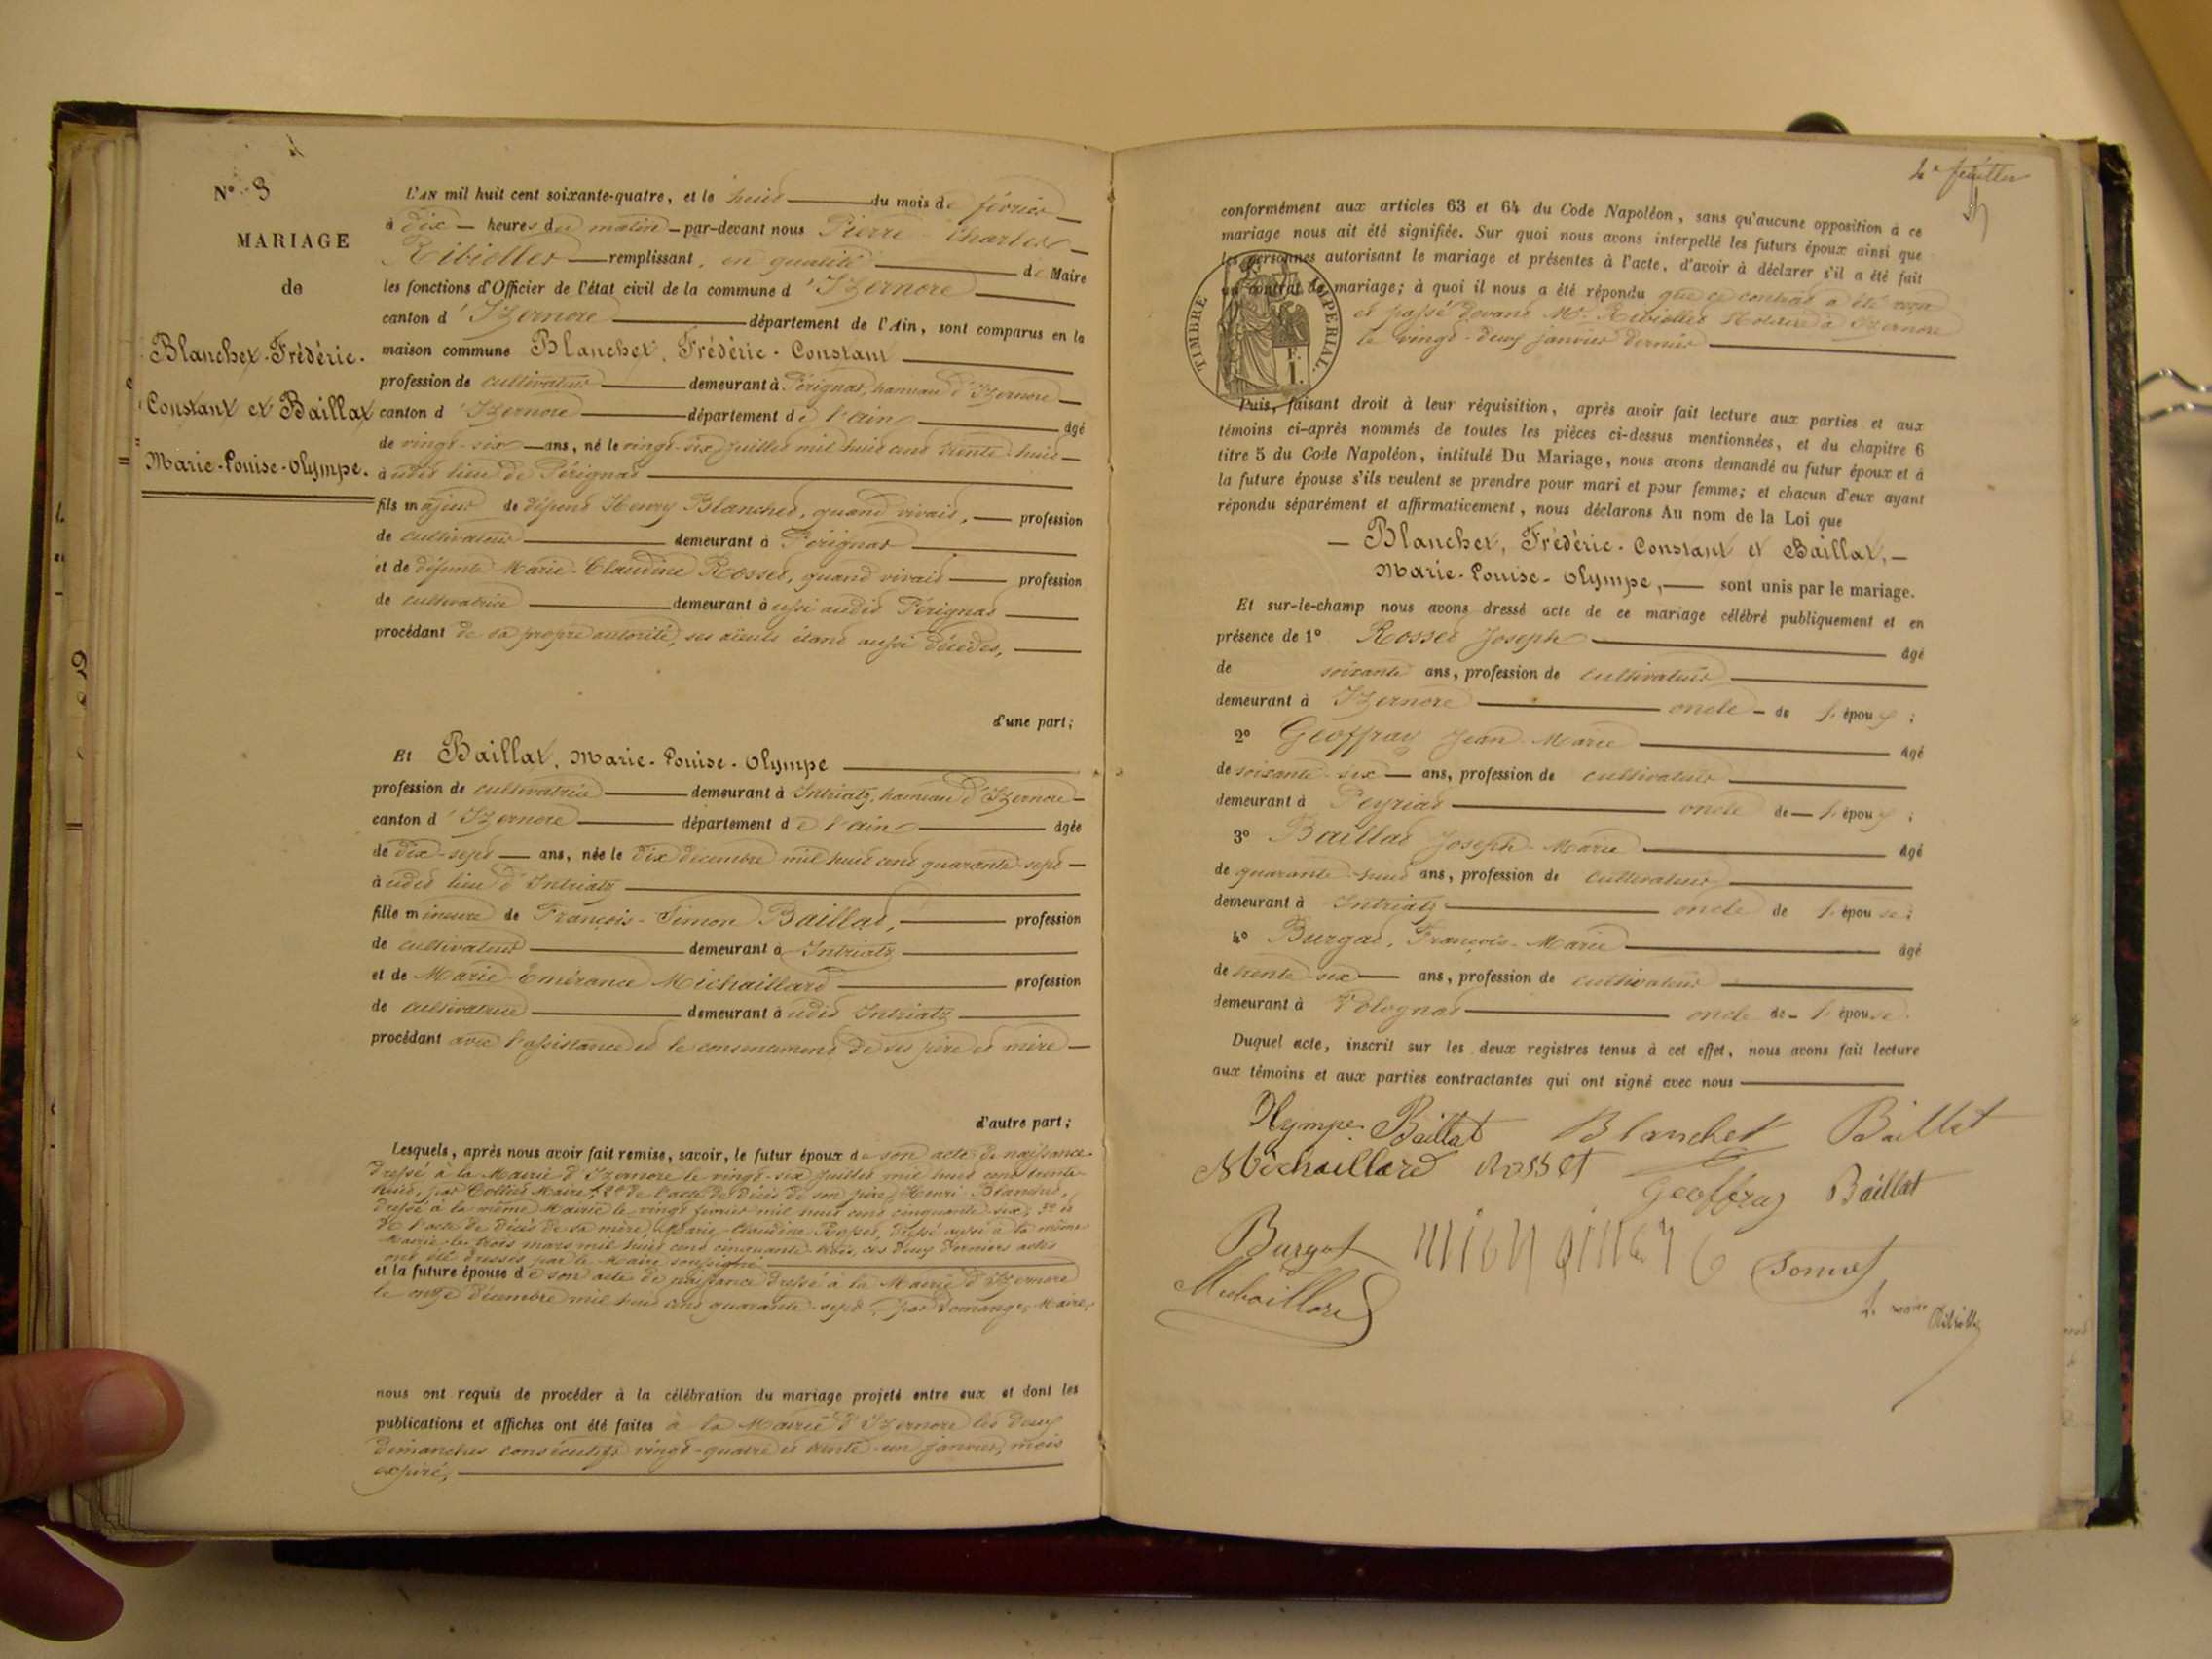 N° 3
MARIAGE
de
Blanchet-Frédéric-
Constant et Baillat
Marie-Louise-Olympe.
L'AN mil huit cent soixante-quatre, et le huit du mois de février
à dix heures du matin par-devant nous Pierre-Charles
Ribiollet remplissant, en qualité de Maire
les fonctions d'Officier de l'état civil de la commune d'Izernore
canton d'Izernore département de l'Ain, sont comparus en la
maison commune Blanchet, Frédéric-Constant
profession de cultivateur demeurant à Pérignat, hameau d'Izernore
canton d'Izernore département de l'ain âgé
de vingt-six ans, né le vingt-six juillet mil huit cent trente-huit
à udit lieu de Pérignat
fils majeur de défunt Henry Blanchet, quand vivait, profession
de cultivateur demeurant à Pérignat
et de défunte Marie-Claudine Rosset, quand vivait profession
de cultivatrice demeurant à ussi audit Pérignat
procédant de sa propre autorité, ses aïeuls étant aussi décédés,
d'une part;
Et Baillat, Marie-Louise-Olympe
profession de cultivatrice demeurant à Intriatz, hameau d'Izernore
canton d'Izernore département de l'ain âgée
de dix-sept ans, née le dix décembre mil huit cent quarante-sept
à udit lieu d'Intriatz
fille mineure de François-Simon Baillat, profession
de cultivateur demeurant à Intriatz
et de Marie-Emérance Michaillard profession
de cultivatrice demeurant à udit Intriatz
procédant avec l'assistance et le consentement de ses père et mère
d'autre part;
Lesquels, après nous avoir fait remise, savoir, le futur époux de son acte de naissance
dressé à la Mairie d'Izernore le vingt-six juillet mil huit cent trente-
huit, par Collet Maire; 2° de l'acte de décès de son père, Henri Blanchet,
dressé à la même Mairie le vingt février mil huit cent cinquante-six; 3° et
de l'acte de décès de sa mère, Marie-Claudine Rosset, dressé aussi à la même
Mairie le trois mars mil huit cent cinquante-trois, ces deux derniers actes
ont été dressés par le Maire soussigné
et la future épouse de son acte de naissance dressé à la Mairie d'Izernore
le onze décembre mil huit cent quarante-sept, par Domange, Maire;
nous ont requis de procéder à la célébration du mariage projeté entre eux et dont les
publications et affiches ont été faites à la Mairie d'Izernore les deux
dimanches consécutifs vingt-quatre et trente-un janvier, mois
expiré,
4e feuillet
conformément aux articles 63 et 64 du Code Napoléon, sans qu'aucune opposition à ce
mariage nous ait été signifiée. Sur quoi nous avons interpellé les futurs époux ainsi que
les personnes autorisant le mariage et présentes à l'acte, d'avoir à déclarer s'il a été fait
un contrat de mariage; à quoi il nous a été répondu que ce contrat a été reçu
et passé devant Me Ribiollet Notaire à Izernore
le vingt-deux janvier dernier
TIMBRE IMPERIAL.
Puis, faisant droit à leur réquisition, après avoir fait lecture aux parties et aux
témoins ci-après nommés de toutes les pièces ci-dessus mentionnées, et du chapitre 6
titre 5 du Code Napoléon, intitulé Du Mariage, nous avons demandé au futur époux et à
la future épouse s'ils veulent se prendre pour mari et pour femme; et chacun d'eux ayant
répondu séparément et affirmativement, nous déclarons Au nom de la Loi que
Blanchet, Frédéric-Constant et Baillat,
Marie-Louise-Olympe, sont unis par le mariage.
Et sur-le-champ nous avons dressé acte de ce mariage célébré publiquement et en
présence de 1° Rosset Joseph âgé
de soixante ans, profession de cultivateur
demeurant à Izernore oncle de l'époux;
2° Geoffray Jean-Marie âgé
de soixante-six ans, profession de cultivateur
demeurant à Peyriat oncle de l'époux;
3° Baillat Joseph-Marie âgé
de quarante-huit ans, profession de cultivateur
demeurant à Intriatz oncle de l'épouse;
4° Burgat, François-Marie âgé
de trente-six ans, profession de cultivateur
demeurant à Volognat oncle de l'épouse.
Duquel acte, inscrit sur les deux registres tenus à cet effet, nous avons fait lecture
aux témoins et aux parties contractantes qui ont signé avec nous
Olympe Baillat Blanchet Baillat
Michaillard Rosset Geoffray Baillat
Burgat
Michaillard
Le maire Ribiollet